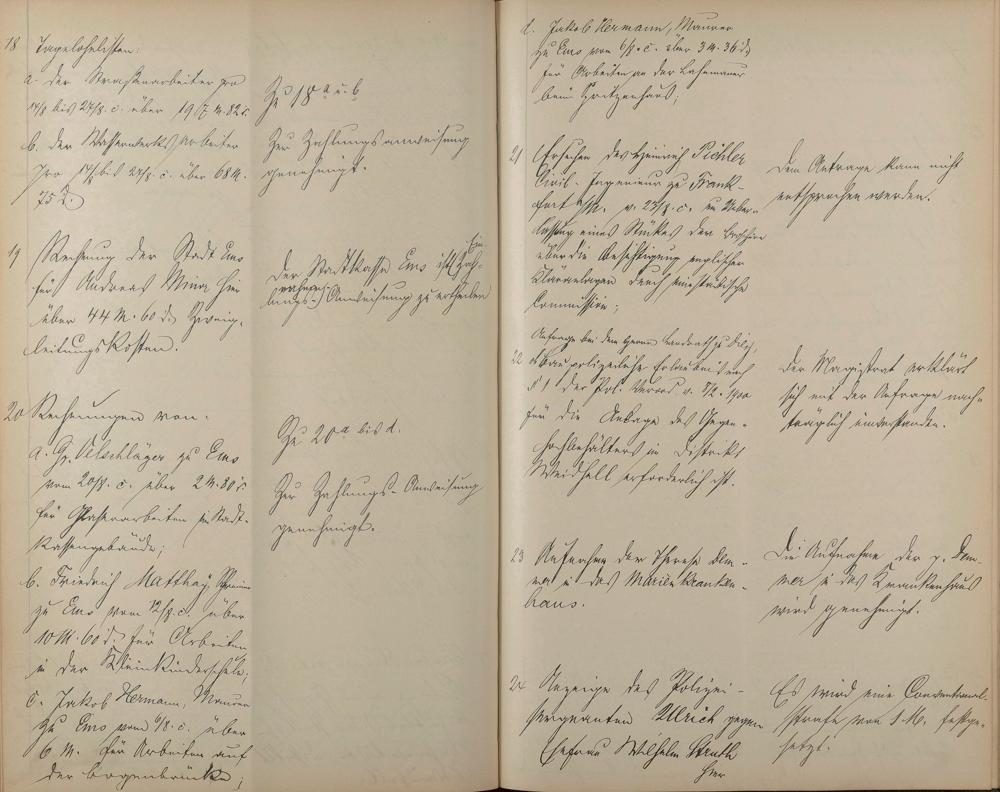 18 Tagelohnlisten:
a. der Straßenarbeiter pro
14/8 bis 27/8. c. über 197 M. 82 d.
b. der Wasserwerksarbeiter
pro 14/8 bis 27/8. c. über 68 M.
75 d.
Zu 18 a u. b
Zur Zahlungsanweisung
genehmigt.
19 Rechnung der Stadt Ems
für Andreas hier
über 44 M. 60 d. Zweig-
leitungskosten.
Der Stadtkasse Ems ist Ein-
nahme-
Anweisung zu ertheilen
20 Rechnungen von:
a. Gg. Oelschläger zu Ems
vom 20/8. c. über 2 M. 80 d.
für Glaserarbeiten im Stadt-
kassengebäude;
b. Friedrich Matthay,
zu Ems vom 12/8. c. über
10 M. 60 d. für Arbeiten
in der Kleinkinderschule;
c. Jakob Hermann, Maurer
zu Ems vom 6/8. c. über
6 M. für Arbeiten auf
der Bogenbrücke;
Zu 20 a bis d.
Zur Zahlungs-Anweisung
genehmigt.
d. Jakob Hermann, Maurer
zu Ems vom 6/8. c. über 3 M. 36 d.
für Arbeiten an der Lahnmauer
beim Spritzenhaus;
21 Ersuchen des Heinrich Pichler
Civil-Ingenieur zu Frank-
furt a/M. v. 23/8. c. um Ueber-
lassung eines Stückes der Broschüre
über die Besichtigung englischer
Kläranlagen durch
Commission;
Dem Antrage kann nicht
entsprochen werden.
Anfrage bei dem Herrn Landrath zu Diez,
22 ob baupolizeiliche Erlaubniß nach
§ 1 der Pol. Verord. v. 1900
für die Anlage des Gegen-
hochbehälters im Distrikt
Weidhell erforderlich ist.
Der Magistrat erklärt
sich mit der Anfrage nach-
träglich einverstanden.
23 Aufnahme der Therese
in das Marienkranken-
haus.
Die Aufnahme der p.
in das Krankenhaus
wird genehmigt.
24 Anzeige des Polizei-
sergeanten Ulrich gegen
Ehefrau Wilhelm
hier
Es wird eine Conventional-
strafe von 1 M. festge-
setzt.